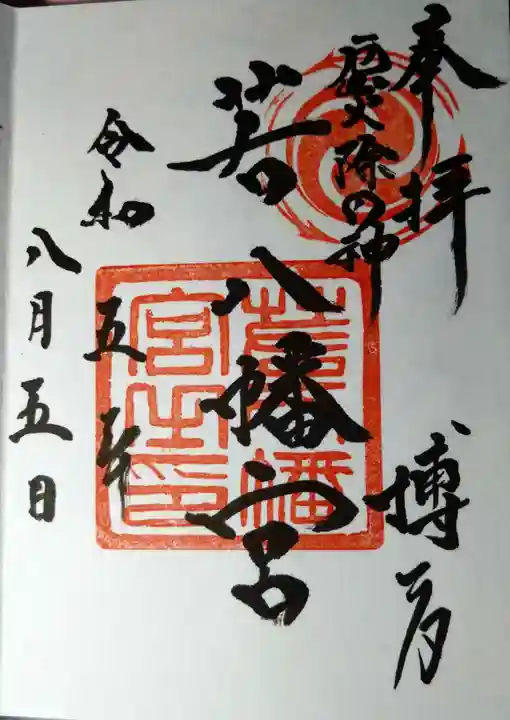 奉拝
厄除の神
博多
若八幡宮
令和五年
八月五日
若八幡
宮之印